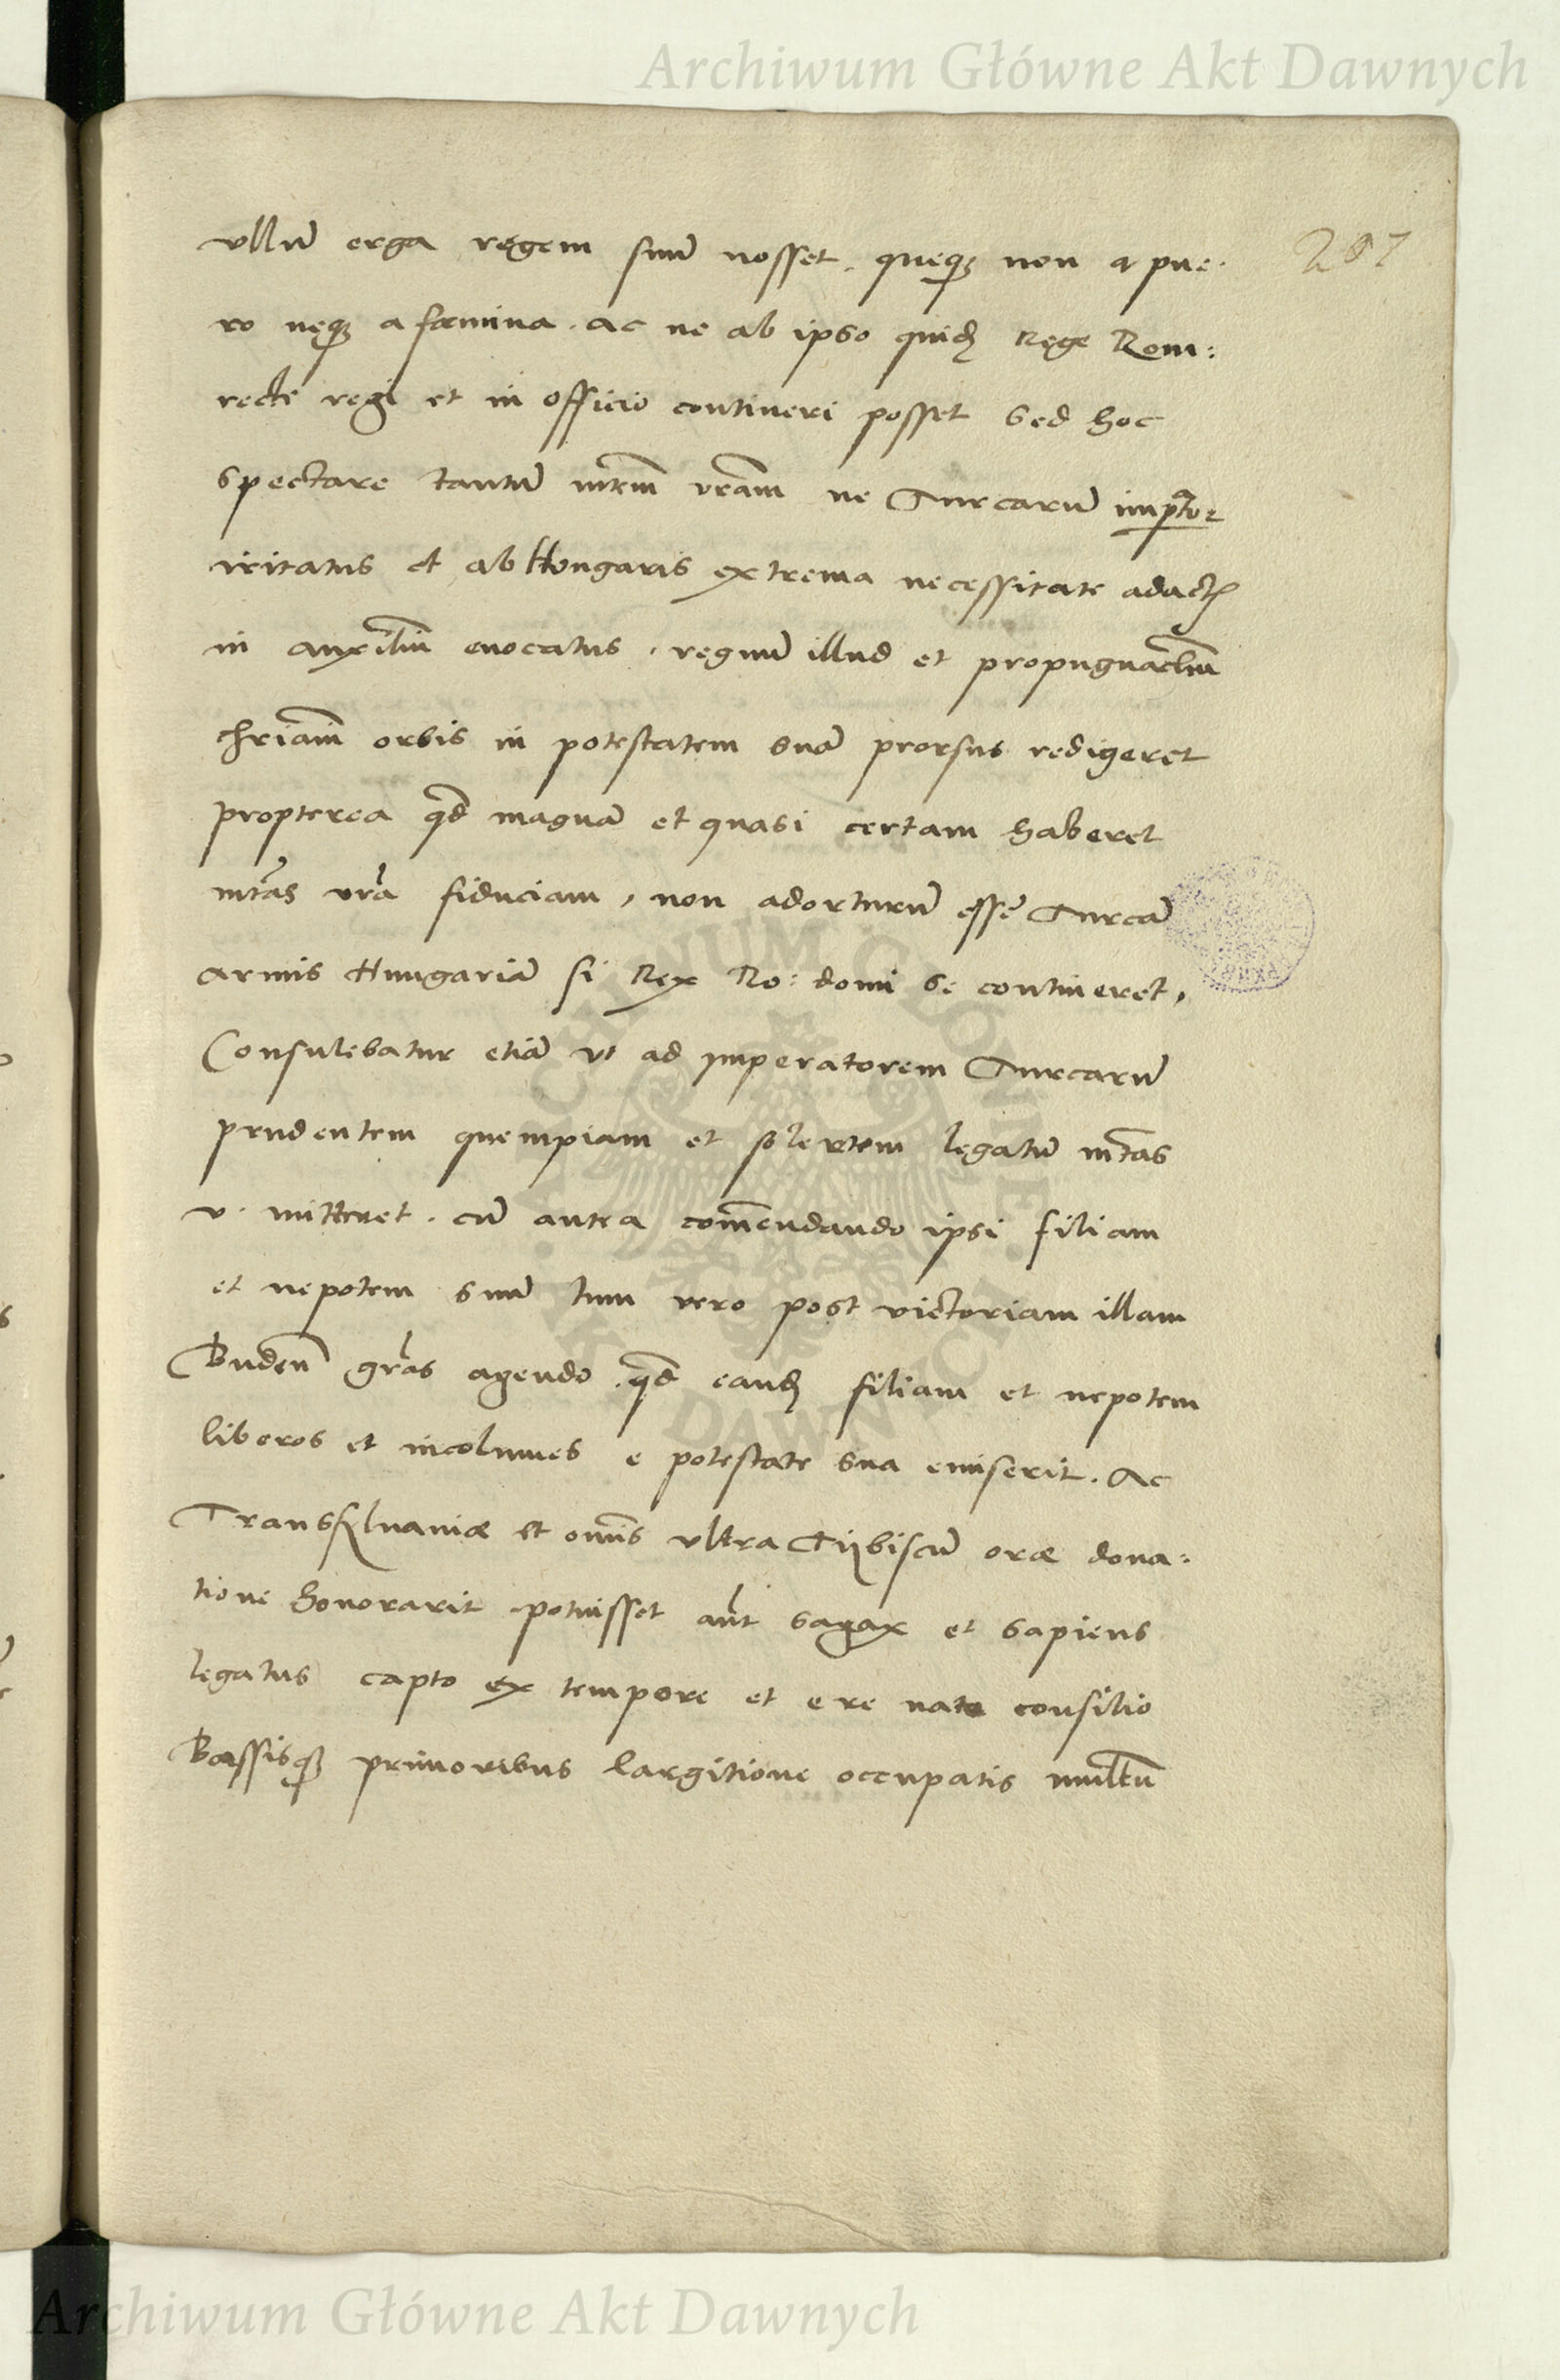 Archiwum Główne Akt Dawnych
207
vllũ erga regem suũ nosset. queq3 non a pue.
ro neq3 a fœmina. ac ne ab ipso quid3 Rege Rom:
recte regi et in officio contineri posset sed hoc
spectare tantũ mtem vram ne Turcarũ impator
irritatus et ab Hongaris extrema necessitate adactis
in auxiliũ euocatus, regnũ illud et propugnaclum
chriani orbis in potestatem suã prorsus redigeret
propterea qd magnã et quasi certam haberet
mtas vra fiduciam, non adorturũ esse Turcã
armis Hungariã si Rex Ro: domi se contineret,
Consulebatur etiã vt ad imperatorem Turcarũ
prudentem quempiam et solertem legatũ mtas
v. mitteret. cũ antea comendando ipsi filiam
et nepotem suũ tum vero post victoriam illam
Buden gras agendo. qd eand3 filiam et nepotem
liberos et incolumes e potestate sua emiserit. Ac
Transsyluaniæ et omis vltra Tijbiscũ oræ dona:
tione honorarit potuisset aut sagax et sapiens
legatus capto ex tempore et e re nata consilio
Bassisq3 primoribus largitione occupatis multũ
ARCHIWUM GŁÓWNE AKT DAWNYCH
Archiwum Główne Akt Dawnych